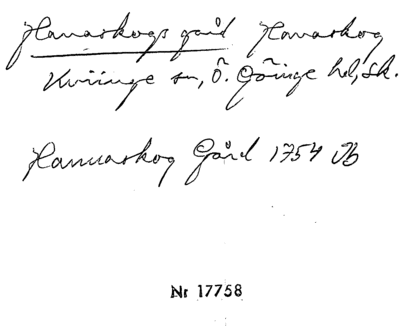 Hanaskogs gård Hanaskog
Kviinge sn, Ö. Göinge hd, Sk.
Hannaskog Gård 1754 Jb
Nr 17758